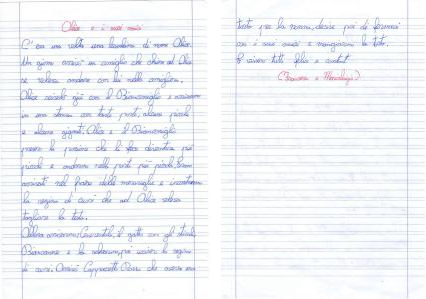 Alice e i suoi amici
C'era una volta una bambina di nome Alice.
Un giorno arrivò un coniglio che chiese ad Alice
se voleva andare con lui nelle meraviglie.
Alice cascò giù con il Bianconiglio e arrivarono
in una stanza con tante porte, alcune piccole
e alcune giganti. Alice e il Bianconiglio
presero la pozione che li fece diventare più
piccoli e andarono nella porta più piccola. Erano
arrivati nel paese delle meraviglie e incontrarono
la regina di cuori che ad Alice voleva
tagliare la testa.
Allora arrivarono: Cenerentola, il gatto con gli stivali,
Biancaneve e la
di cuori. Arrivò Cappuccetto Rosso che aveva una
torta per la nonna, decise poi di fermarsi
con i suoi amici e mangiarono la torta.
E vissero tutti felici e contenti